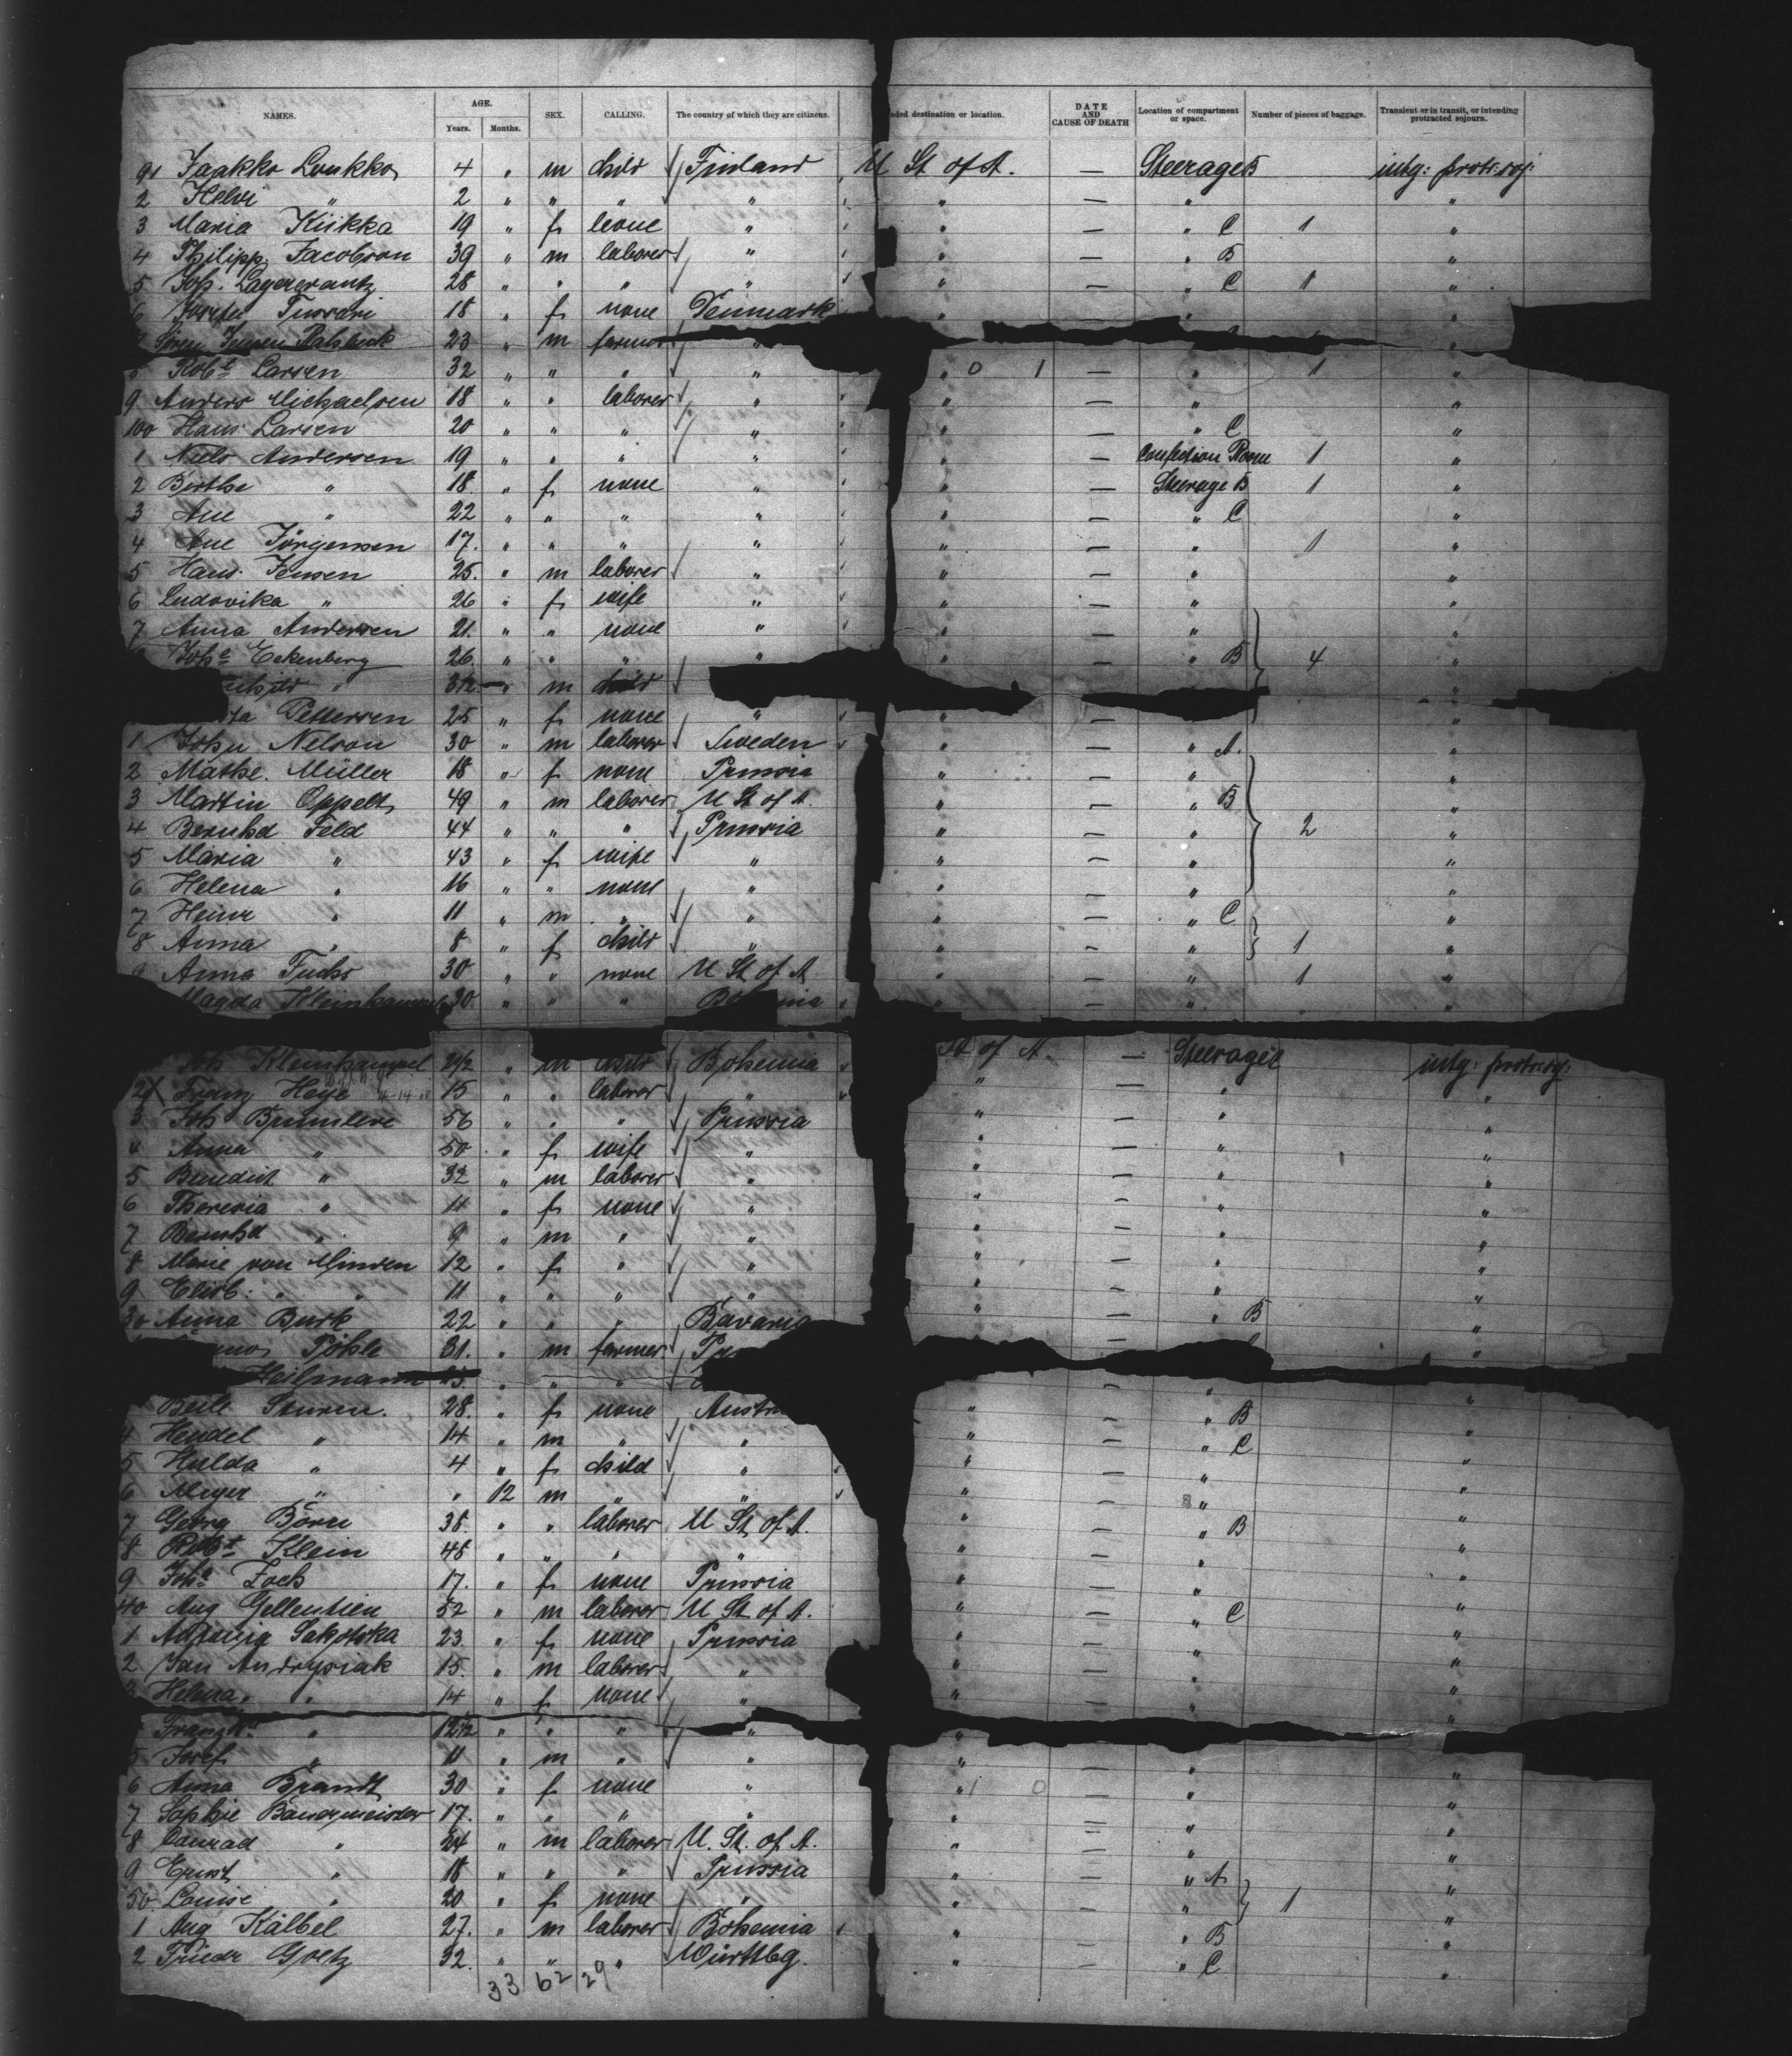 NAMES. AGE. Years. Months. SEX. CALLING. The country of which they are citizens. nded destination or location. DATE AND CAUSE OF DEATH Location of compartment or space. Number of pieces of baggage. Transient or in transit, or intending protracted sojourn.
91 Jaakko Loukko 4 " m child Finland U St of A. — Steerage B intg: protr: soj:
2 Helvi " 2 " " " " " — " "
3 Maria Kiikka 19 " f none " " — " C 1 "
4 Philipp Jacobson 39 " m laborer " " — " B "
5 Joh. Lagercrantz 28 " " " " " — " C 1 "
6 18 " f none Denmark " — " "
Jensen 23 " m farmer " "
8 Robt Larsen 32 " " " " " 0 1 — " 1 "
9 Anders Michaelsen 18 " " laborer " " — " "
100 Hans Larsen 20 " " " " " — " C "
1 Niels Andersen 19 " " " " " — Confection Room 1 "
2 Birthe " 18 " f none " " — Steerage B 1 "
3 Ane " 22 " " " " " — " C "
4 Ane Jörgensen 17. " " " " " — " 1 "
5 Hans Jensen 25. " m laborer " " — " "
6 Ludovika " 26 " f wife " " — " "
7 Anna Andersen 21. " " none " " — " "
Johe Eckenberg 26. " " " " " — " B 4 "
" 3½ " m child
Petersen 25 " f none " " — "
1 John Nelson 30 " m laborer Sweden " — " A. "
2 Mathe. Müller 18 " f none Prussia " — " "
3 Martin Oppelt 49 " m laborer U St of A. " — " B "
4 Bernhd Feld 44 " " " Prussia " — " 2 "
5 Maria " 43 " f wife " " — " "
6 Helena " 16 " " none " " — " "
7 Heinr " 11 " m " " " — " C "
8 Anna " 8 " f child " " — " 1 "
9 Anna Fuchs 30 " " none U St of A " — " 1 "
Magda 30 " " " " — " "
Joh 2½ " m child Bohemia St of A — Steerage C intg: protr: soj:
2 X Franz Heye 15 " " laborer " " — " "
3 Joh 56 " " " Prussia " — " "
4 Anna " 50 " f wife " " — " "
5 Benedict " 32 " m laborer " " — " "
6 Theresia " 11 " f none " " — " "
7 Bernhd " 9 " m " " " — " "
8 Marie von Minden 12 " f " " " — " "
9 Elisb: " " 11 " " " " " — " "
30 Anna Burk 22 " " " Bavaria " — " B "
Pöhle 31. " m farmer
Heilmann " " " —
Beile 28. " f none Austr " — " B "
4 Hendel " 14 " m " " " — " C "
5 Hulda " 4 " f child " " — " "
6 Meyer " " 12 m " " " — " "
7 Georg Born 38. " " laborer U St of A. " — " B "
8 Robt Klein 48 " " " " " — " "
9 Joha Zoch 17. " f none Prussia " — " "
40 Aug Gellentien 52 " m laborer U St of A. " — " C "
1 Antonia 23. " f none Prussia " — " "
2 Jan Andrysiak 15. " m laborer " " — " "
3 Helena " 14 " f none " " — " "
" 12½ " " " "
5 Josef " 11 " m " " " "
6 Anna Brandt 30 " f none " " 1 0 — " "
7 Sophie Bauermeister 17. " " " " " — " "
8 Conrad " 24 " m laborer U. St. of A. " — " "
9 Ernst " 18 " " " Prussia " — " A "
50 Louise " 20 " f none " " — " 1 "
1 Aug Kälbel 27. " m laborer Bohemia " — " B "
2 Friedr Goetz 32. " " " Württbg. " — " C "
33 62 29